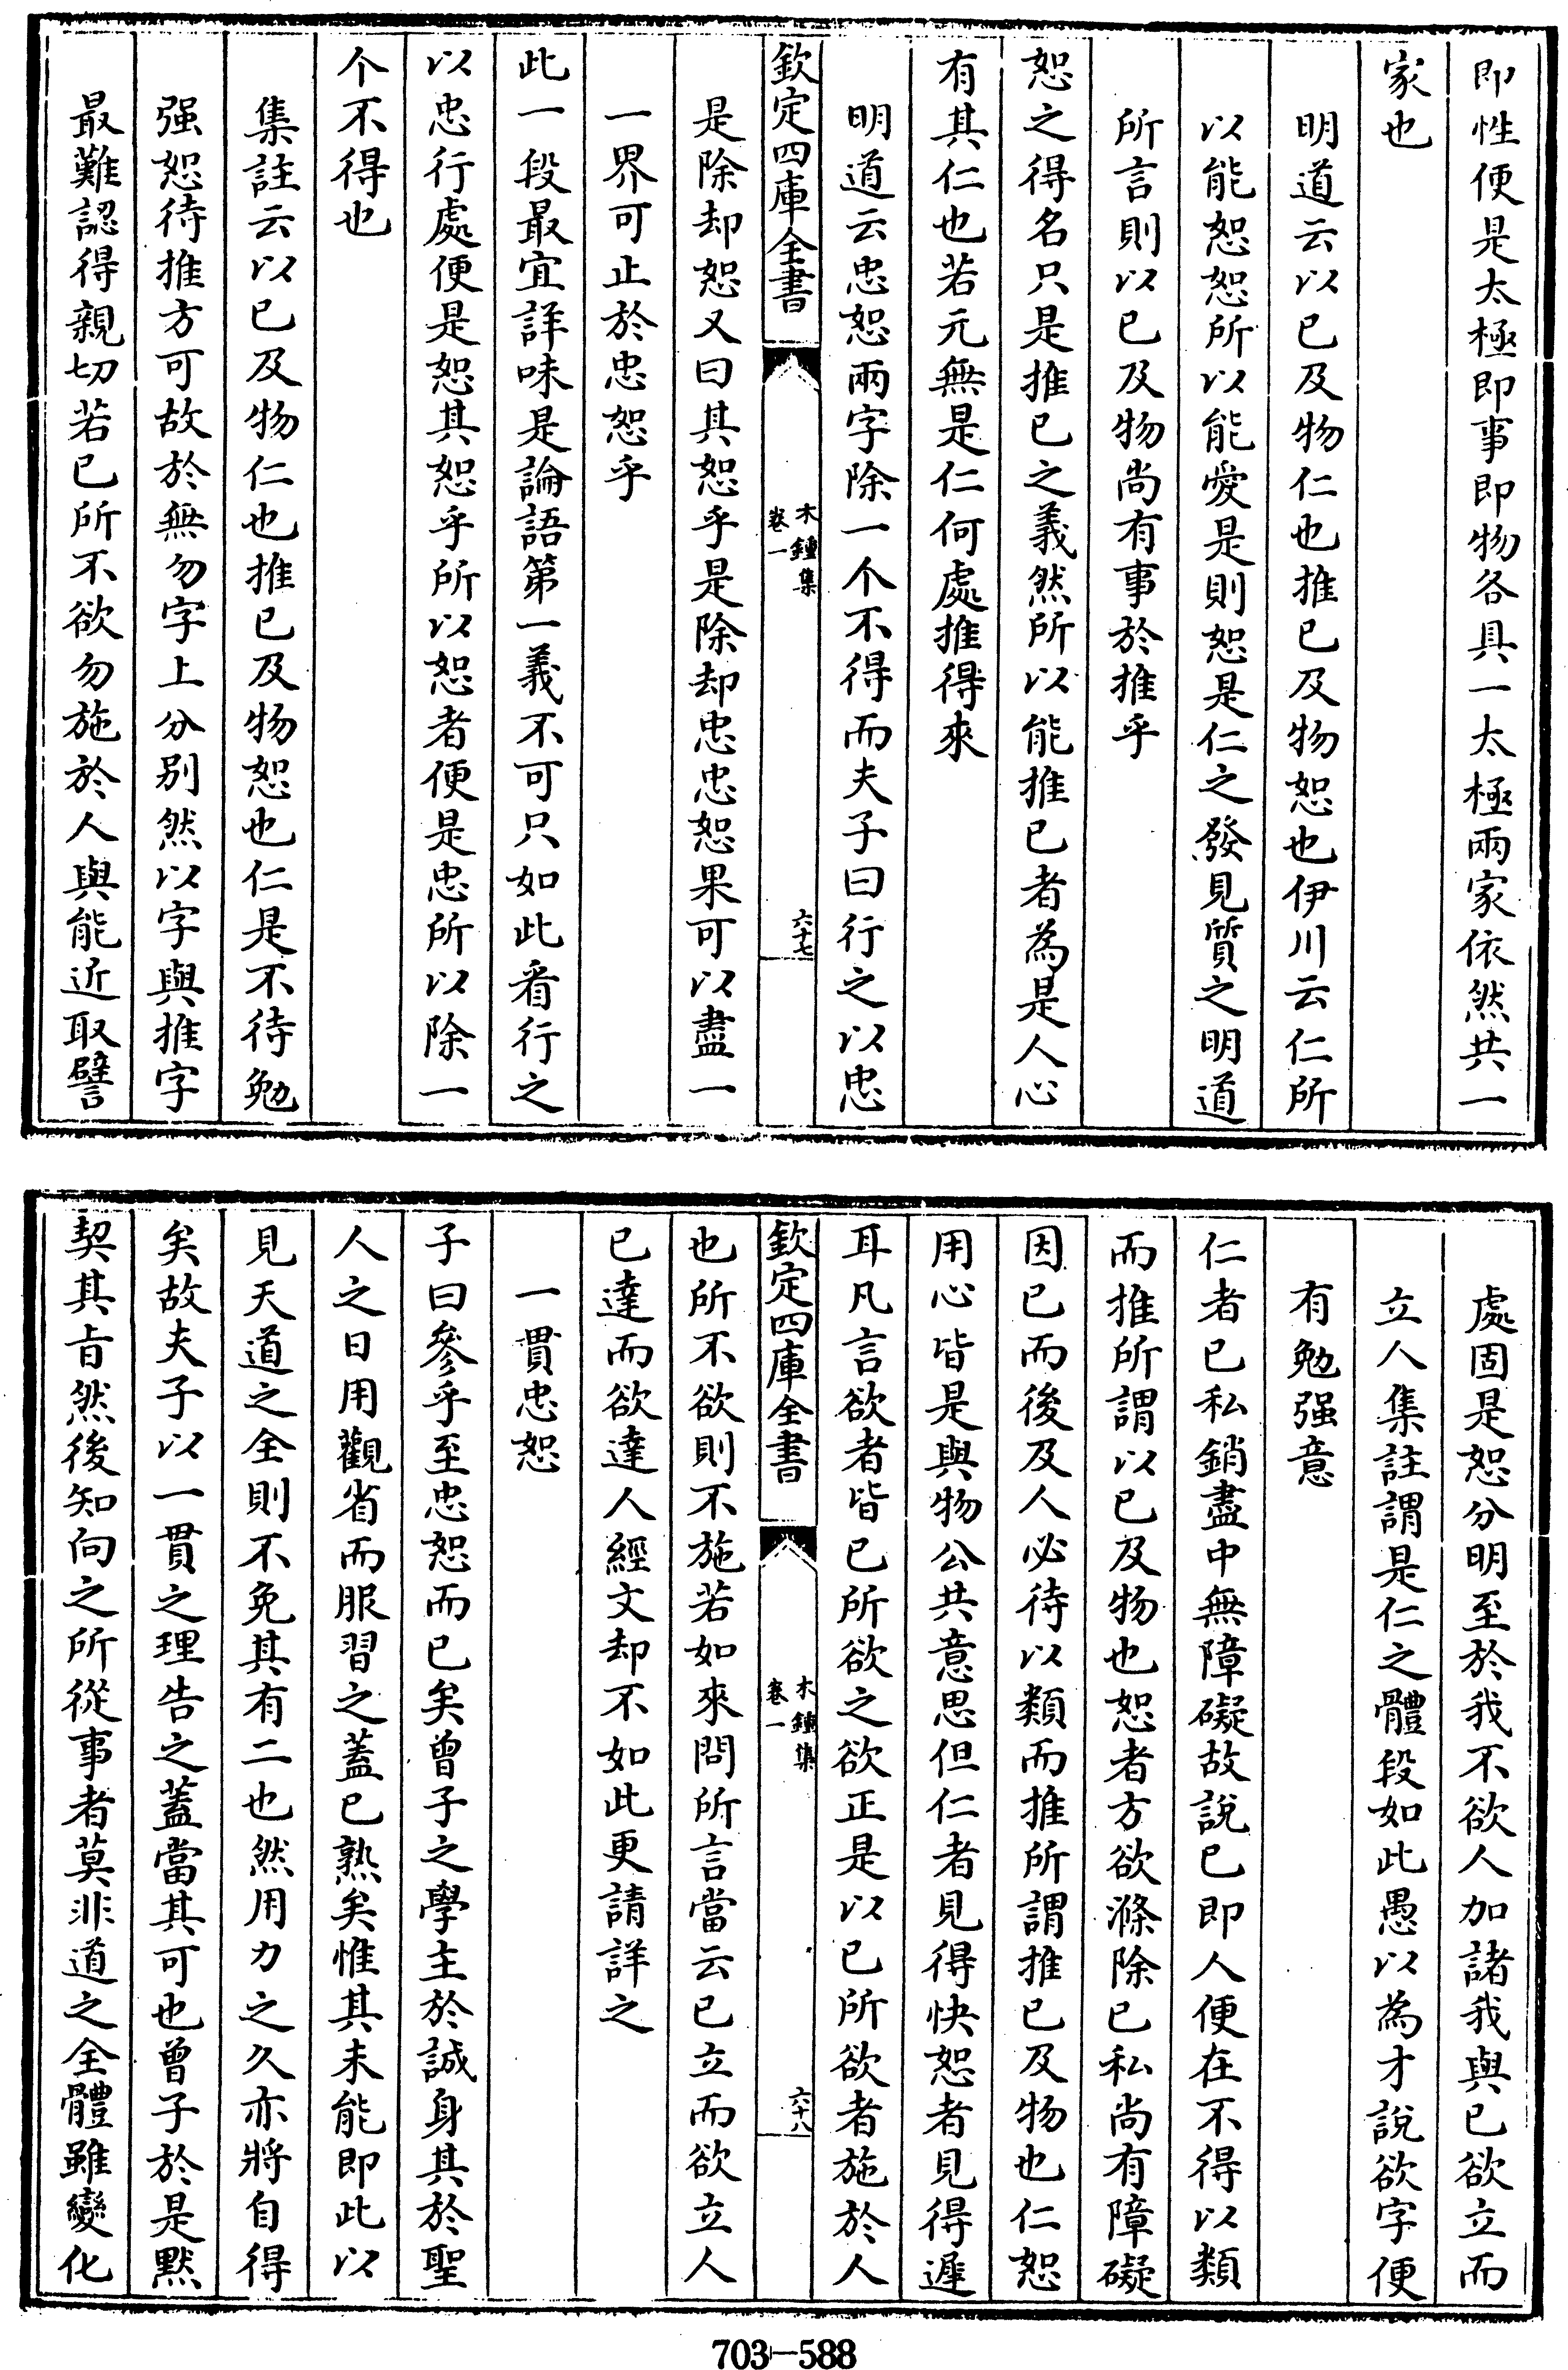 即性便是太極即事即物各具一太極兩家依然共一
家也
明道云以已及物仁也推已及物恕也伊川云仁所
以能恕恕所以能愛是則恕是仁之發見質之明道
所言則以已及物尚有事於推乎
恕之得名只是推已之義然所以能推已者為是人心
有其仁也若元無是仁何處推得來
明道云忠恕兩字除一个不得而夫子曰行之以忠
欽定四庫全書
木鍾集
卷一
六十七
是除却恕又曰其恕乎是除却忠忠恕果可以盡一
一界可止於忠恕乎
此一段最宜詳味是論語第一義不可只如此看行之
以忠行處便是恕其恕乎所以恕者便是忠所以除一
个不得也
集註云以已及物仁也推已及物恕也仁是不待勉
强恕待推方可故於無勿字上分别然以字與推字
最難認得親切若已所不欲勿施於人與能近取譬
處固是恕分明至於我不欲人加諸我與已欲立而
立人集註謂是仁之體段如此愚以為才說欲字便
有勉强意
仁者已私銷盡中無障礙故說已即人便在不得以類
而推所謂以已及物也恕者方欲滌除已私尚有障礙
因已而後及人必待以類而推所謂推已及物也仁恕
用心皆是與物公共意思但仁者見得快恕者見得遲
耳凡言欲者皆已所欲之欲正是以已所欲者施於人
欽定四庫全書
木鍾集
卷一
六十八
也所不欲則不施若如來問所言當云已立而欲立人
已達而欲達人經文却不如此更請詳之
一貫忠恕
子曰參乎至忠恕而已矣曾子之學主於誠身其於聖
人之日用觀省而服習之蓋已熟矣惟其未能即此以
見天道之全則不免其有二也然用力之久亦將自得
矣故夫子以一貫之理告之蓋當其可也曾子於是默
契其旨然後知向之所從事者莫非道之全體雖變化
703-588